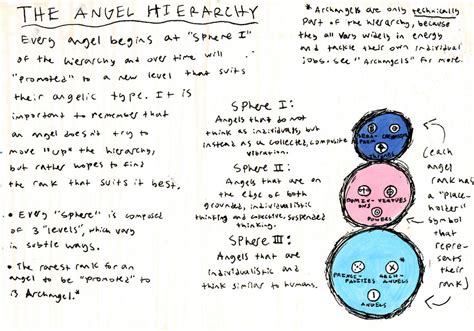 THE ANGEL HIERARCHY
Every angel begins at "Sphere I"
of the hierarchy and over time will
"promoted" to a new level that suits
their angelic type. It is
important to remember that
an angel doesn't try to
move "up" the hierarchy,
but rather hopes to find
the rank that suits it best.
• Every "sphere" is composed
of 3 "levels", which vary
in subtle ways.
• The rarest rank for an
angel to be "promoted" to
is Archangel.*
* Archangels are only technically
part of the hierarchy, because
they all vary widely in energy
and tackle their own individual
jobs. See "Archangels" for more.
Sphere I:
Angels that do not
think as individuals, but
instead as a collected, composite
vibration.
Sphere II:
Angels that are on
the edge of both
grounded, individualistic
thinking and collective, suspended
thinking.
Sphere III:
Angels that are
individualistic and
think similar to humans.
SERA-
PHIM
CHERUBIM
THRONES
DOMIN-
IONS
VIRTUES
POWERS
PRINCI-
PALITIES
ARCH-
ANGELS
ANGELS
(each
angel
rank has
a "place-
holder"
symbol
that
represents
their
rank)